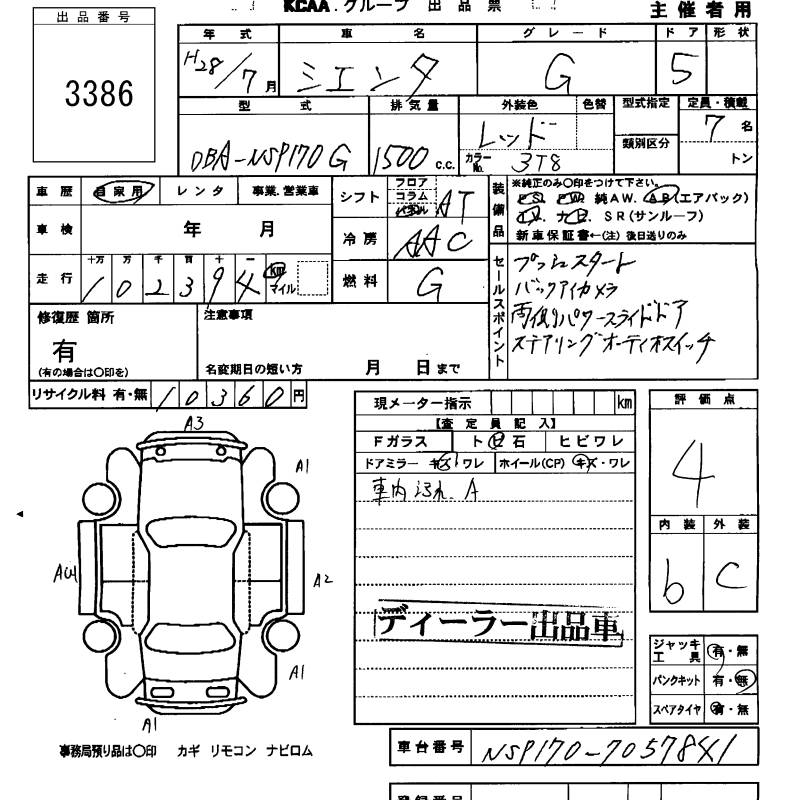 KCAA.グループ 出品票
主催者用
出品番号
3386
年式 車名 グレード ドア 形状
H28/7月 シエンタ G 5
型式 排気量 外装色 色替 型式指定 定員・積載
DBA-NSP170G 1500c.c. レッド カラーNo. 3T8 類別区分 7名 トン
車歴 自家用 レンタ 事業.営業車
シフト フロア コラム AT
装備品 ※純正のみ〇印をつけて下さい。
PS. PW. 純AW. AB(エアバック)
ナビ. SR(サンルーフ)
新車保証書←(注)後日送りのみ
車検 年 月
冷房 AAC
走行 十万 万 千 百 十 一
102394 km マイル
燃料 G
セールスポイント
プッシュスタート
バックアイカメラ
両側パワースライドドア
ステアリングオーディオスイッチ
修復歴 箇所
有
(有の場合は〇印を)
注意事項
名変期日の短い方 月 日まで
リサイクル料 有・無 10360円
現メーター指示 km
【査定員記入】
Fガラス ト 石 ヒビワレ
ドアミラー キズ ワレ ホイール(CP) キズ・ワレ
車内汚れ. A
ディーラー出品車
評価点
4
内装 外装
b C
A3
A1
A2
A1
A1
ジャッキ工具 有・無
パンクキット 有・無
スペアタイヤ 有・無
事務局預り品は〇印 カギ リモコン ナビロム
車台番号 NSP170-7057841
登録番号